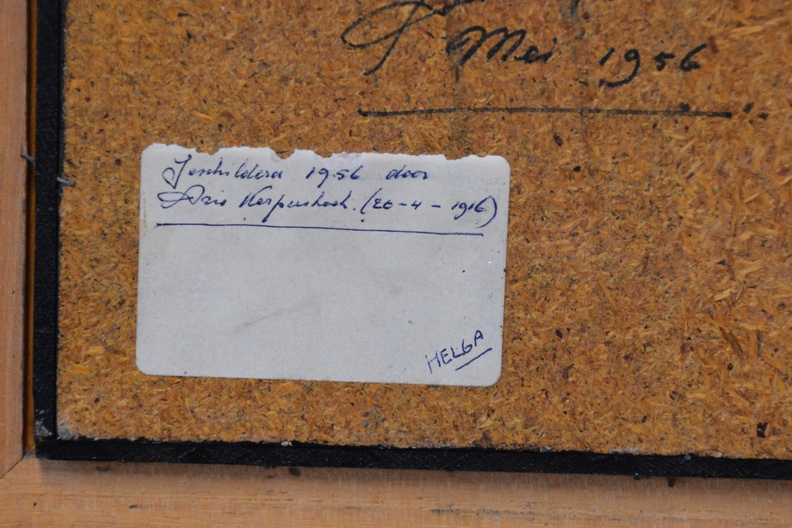 Mei 1956
Geschilderd 1956 door
Arie Kerpershoek. (20-4-1916)
HELGA